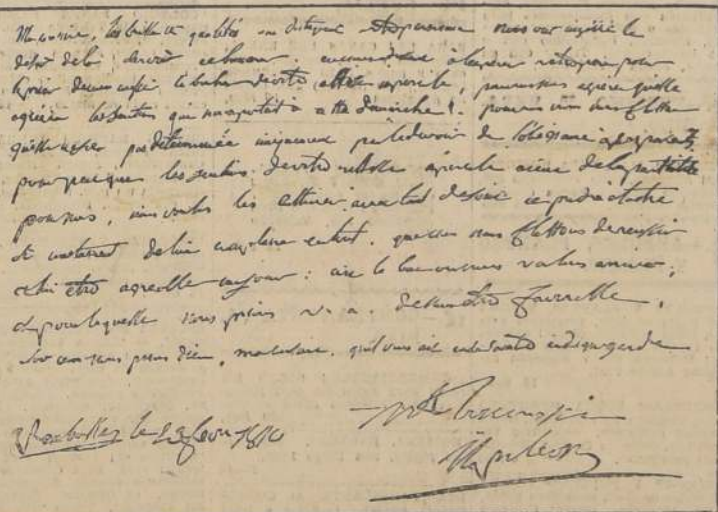 Ma cousine, les brillantes qualités qui distinguent votre personne nous ont inspiré le
désir de la servir et honorer en nous adressant à l'empereur votre père pour
le prier de nous confier le bonheur de votre altesse imperiale, pouvons nous espérer quelle
agréera les sentimens qui nous portent à cette démarche? pouvons nous nous flatter
quelle ne sera pas déterminée uniquement par le devoir de l'obeissance à ses parents?
pour peu que les sentimens de votre altesse imperiale aient de la partialité
pour nous, nous voulons les cultiver avec tant de soin et prendre à tache
si constament de lui complaire en tout, que nous nous flattons de reussir
à lui être agreable un jour: c'est le but où nous voulons arriver,
et pour lequel nous prions v. a. de nous être favorable.
Sur ce nous prions dieu, ma cousine, qu'il vous ait en sa sainte et digne garde
Rambouillet le 23 fevr 1810
votre bon cousin
Napoleon